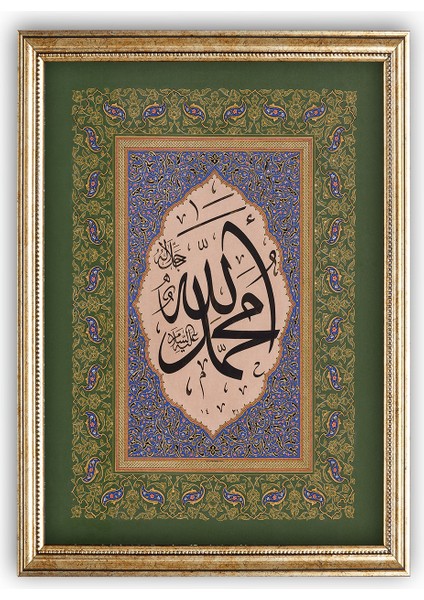 جل جلاله
الله
محمد
عليه السلام